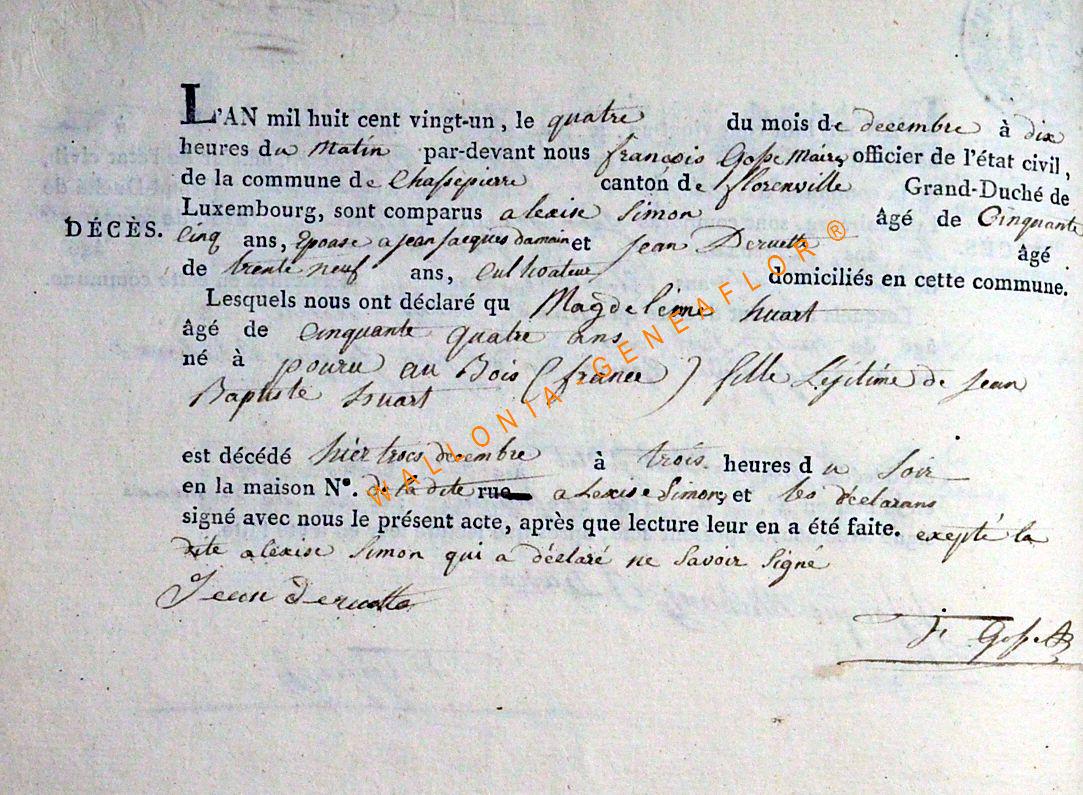 L'AN mil huit cent vingt-un, le quatre du mois de decembre à dix
heures du Matin par-devant nous françois Gosse Maire, officier de l'état civil,
de la commune de Chassepierre canton de florenville Grand-Duché de
Luxembourg, sont comparus alexise Simon âgé de Cinquante
DÉCÈS.
Cinq ans, Epouse a jean jacques damain et Jean Deruette âgé
de trente neuf ans, Cultivateur domiciliés en cette commune.
Lesquels nous ont déclaré qu Magdelenne huart
âgé de Cinquante quatre ans
né à pouru au Bois (france) fille Légitime de Jean
Baptiste huart
est décédé hier trois decembre à trois heures du Soir
en la maison N°. de la dite rue alexise Simon, et les déclarans
signé avec nous le présent acte, après que lecture leur en a été faite. exepté la
dite alexise Simon qui a déclaré ne Savoir Signé
Jean Deruette
F Gosse
WALLONIA-GENEAFLOR ®